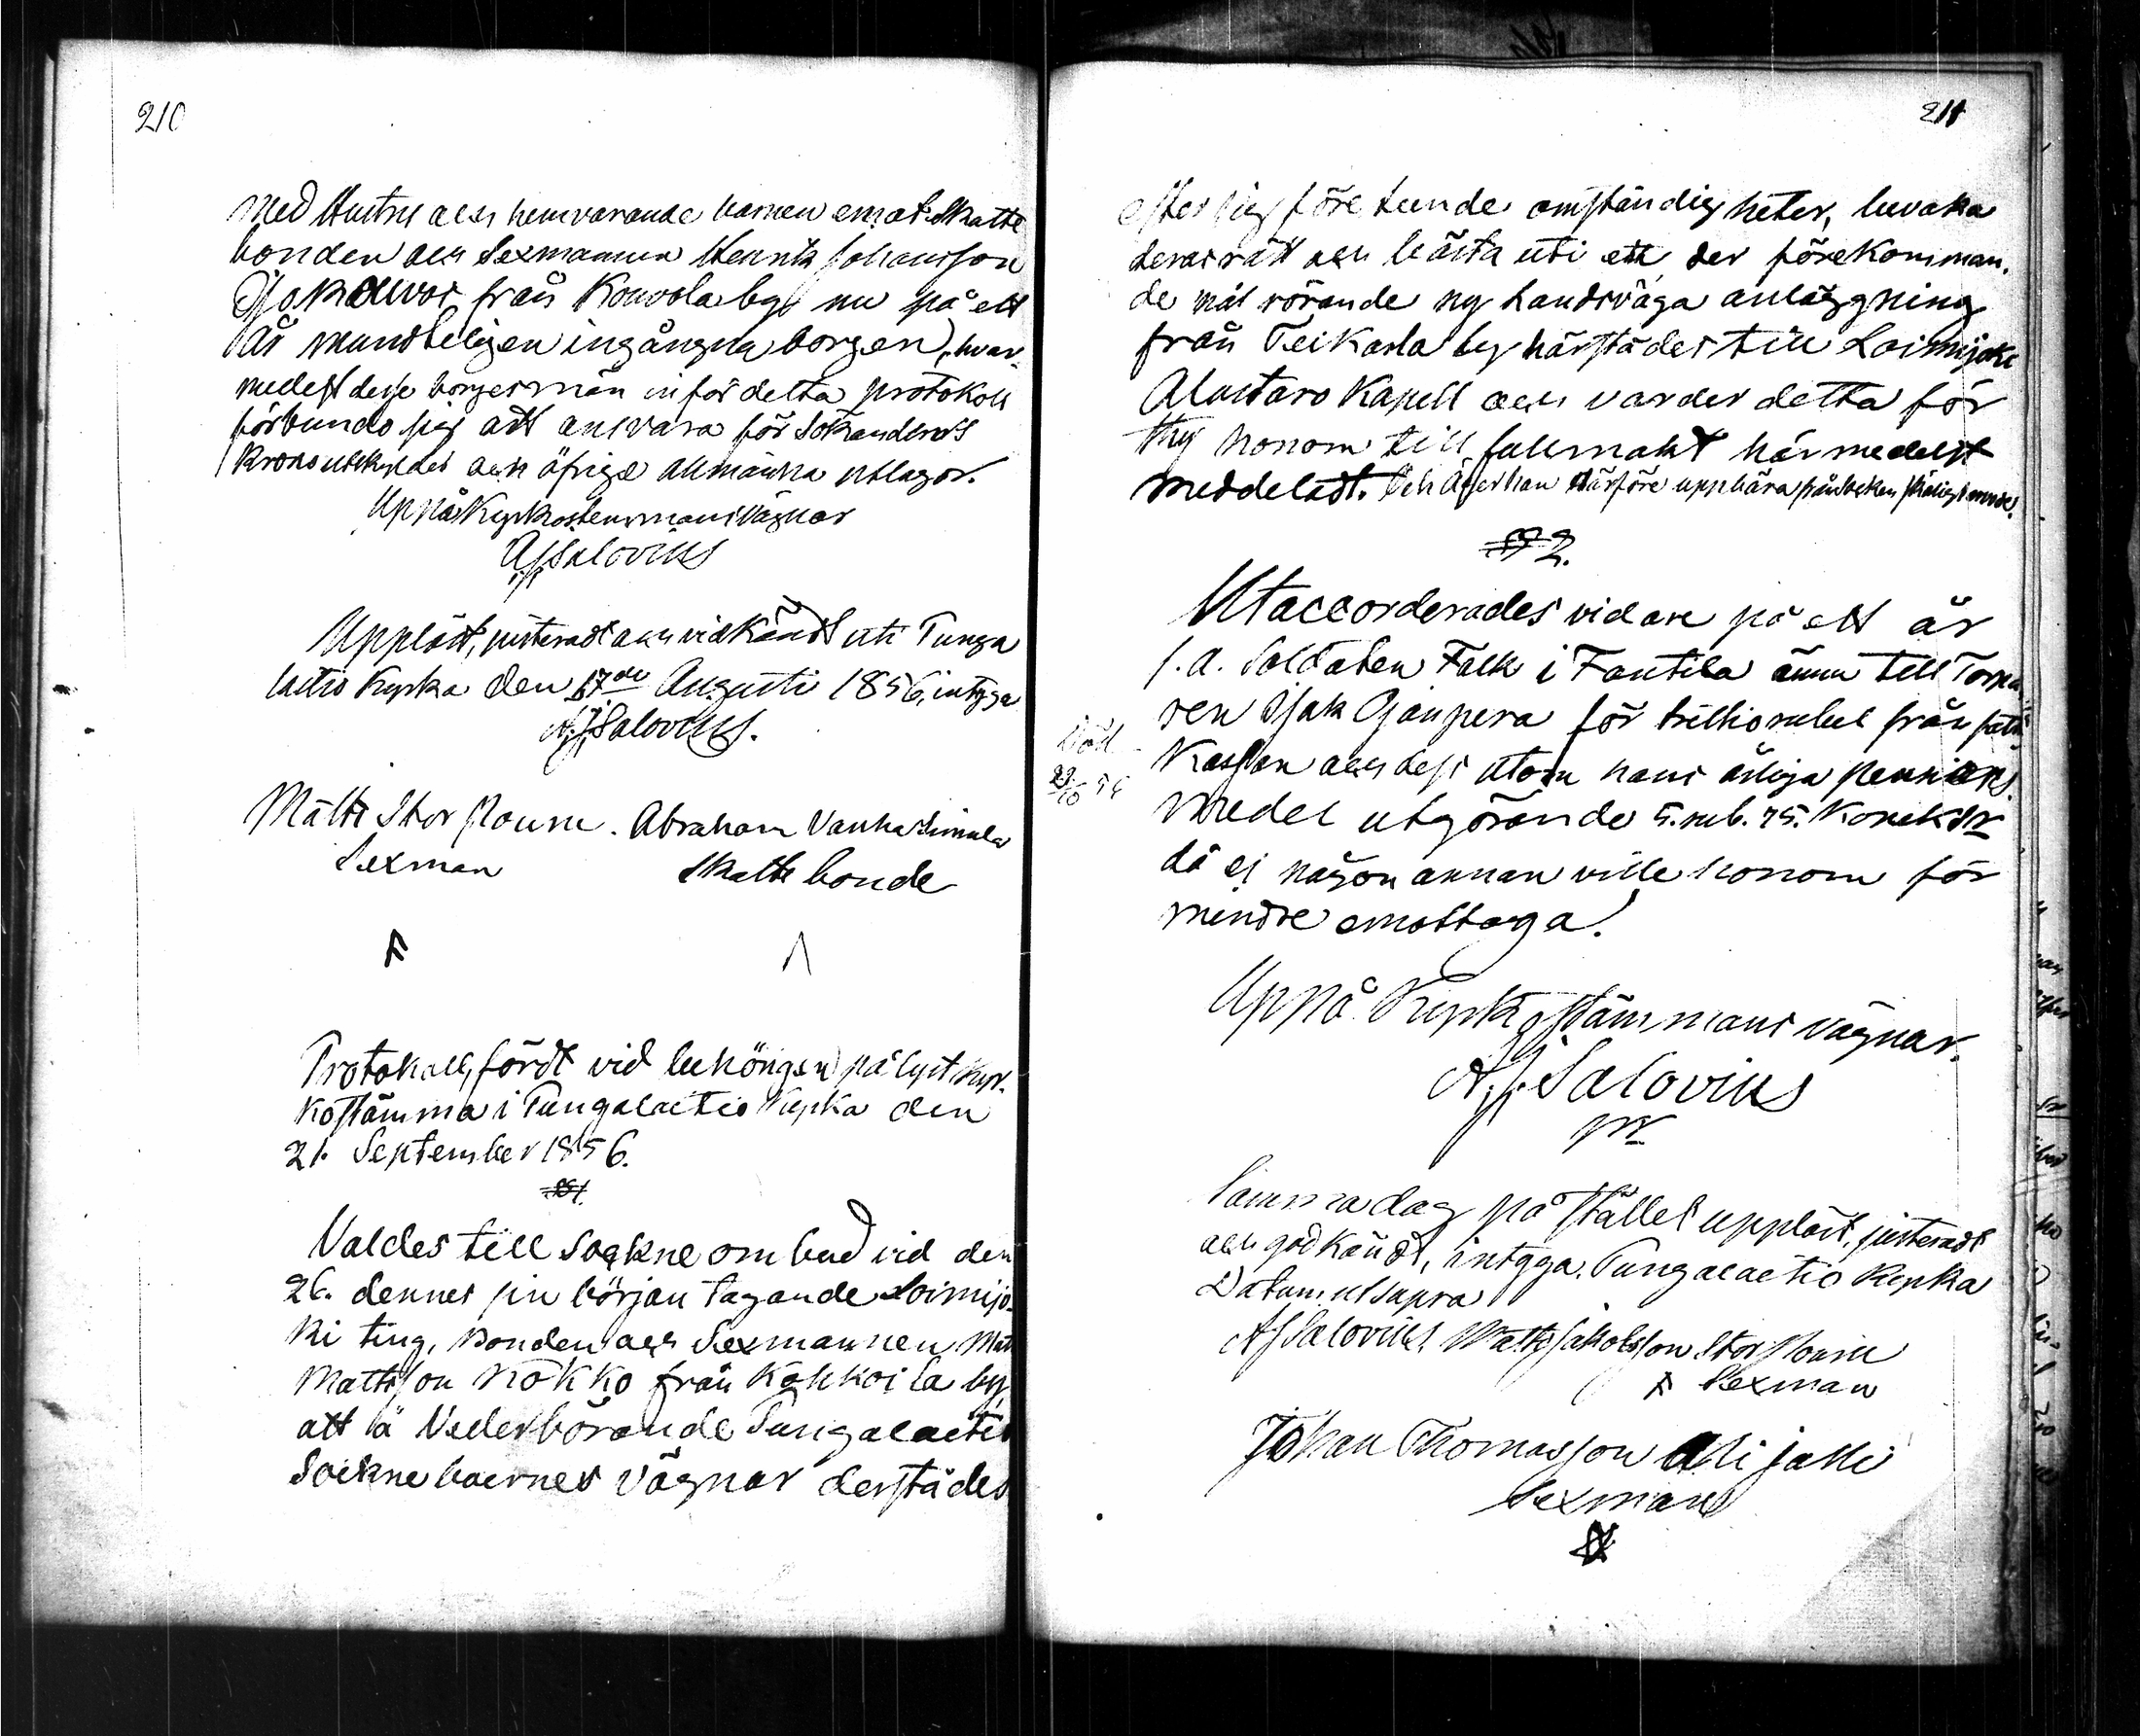 210
med Hustru och hemvarande barnen emot Skatte
bonden och Sexmannen Henrik Johansson
från Kouvola by nu på ett
år mundteligen ingångna borgen, hvar-
medelst desse borgesmän inför detta protokoll
förbundo sig att ansvara för Sökanderas
Kronoutskylder och öfrige allmänna utlagor.
Uppå Kyrkostemmans vägnar
AjSalovius
Uppläst, justeradt och vidkändt uti Punga
laitio Kyrka den 17de Augusti 1856, intyga
A.j.Salovius.
Matts Stor Rouru. Abraham Vanha Simula
Sexman Skatte bonde
Protokoll, fördt vid behörigen pålyst kyr-
kostämma i Pungalaitio Kyrka den
21. September 1856.
§ 1.
Valdes till Sockne ombud vid den
26. dennes sin början tagande Loimijo-
ki ting, bonden och Sexmannen Matts
Mattsson Kökkö från Köhkoila by,
att å Vederbörande Pungalaitio
Sockneboernes vägnar derstädes
211
efter sig företeende omständigheter, bevaka
deras rätt och bästa uti ett der förekomman-
de mål rörande ny landsväga anläggning
från Teikarla by härstädes till Loimijoki
Alastaro Kapell och varder detta för
thy honom till fullmakt härmedelst
meddeladt. Och Äger han därföre uppbära
§ 2.
Utaccorderades vidare på ett år
f.a. Soldaten Falk i Fantila ännu till Torpa-
ren Isak Ojanpera för trettio rubel från fatti
Kassan och dess utom hans årliga pensions
medel utgörande 5. rub. 75. Kopek Sr
då ej någon annan ville honom för
mindre emottaga.
Död
22/10 56
Uppå Kyrkostämmans vägnar.
A.j.Salovius
Samma dag på stället uppläst, justeradt
och godkändt, intyga. Pungalaitio Kyrka
Datum utsupra
AjSalovius. Matts Jakobsson Stor Rouru
Sexman
Johan Thomasson Ali jalli
Sexman